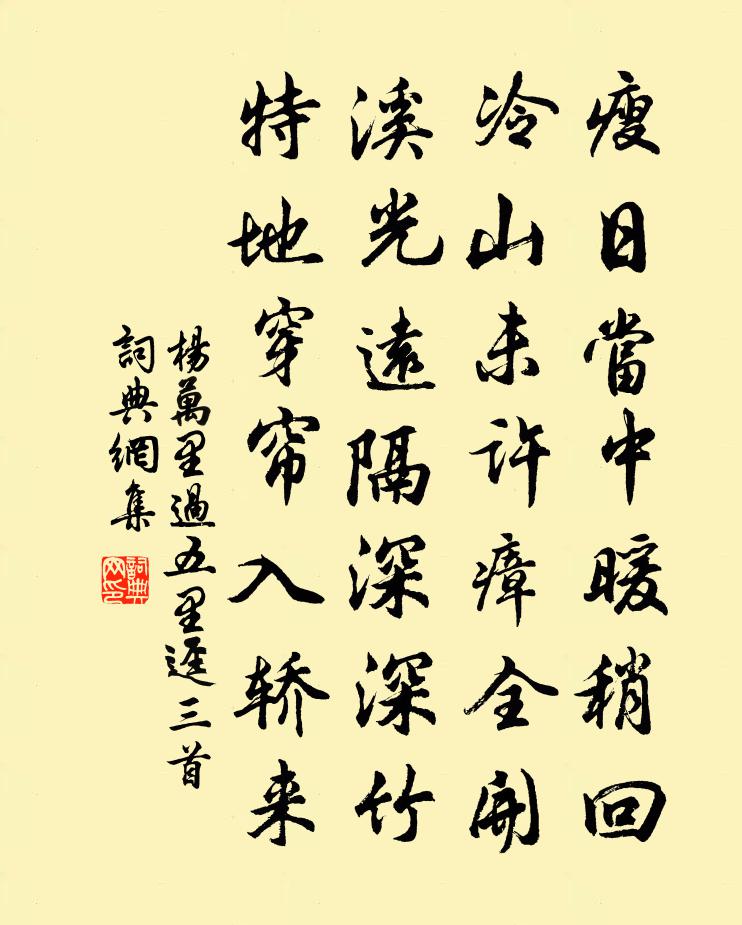 瘦日當中暖稍回
冷山未许瘴全開
溪光遠隔深深竹
特地穿帘入轿来
楊萬里過五里逕三首
詞典網集
詞典网印